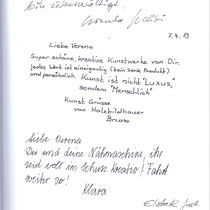 bin überwältigt.
Ursula
7.4.13
Liebe Verena
Super schöne, kreative Kunstwerke von Dir.
jedes Werk ist einzigartig (kein Serie Produkt)
und persönlich. Kunst ist nicht "Luxus",
sondern "Menschlich"
Kunst Grüsse
von Holzbildhauer
Bruno
Liebe Verena
Du und deine Nähmaschine, ihr
seid voll im Schuss. Kreativ! Fahrt
weiter so!
Klara